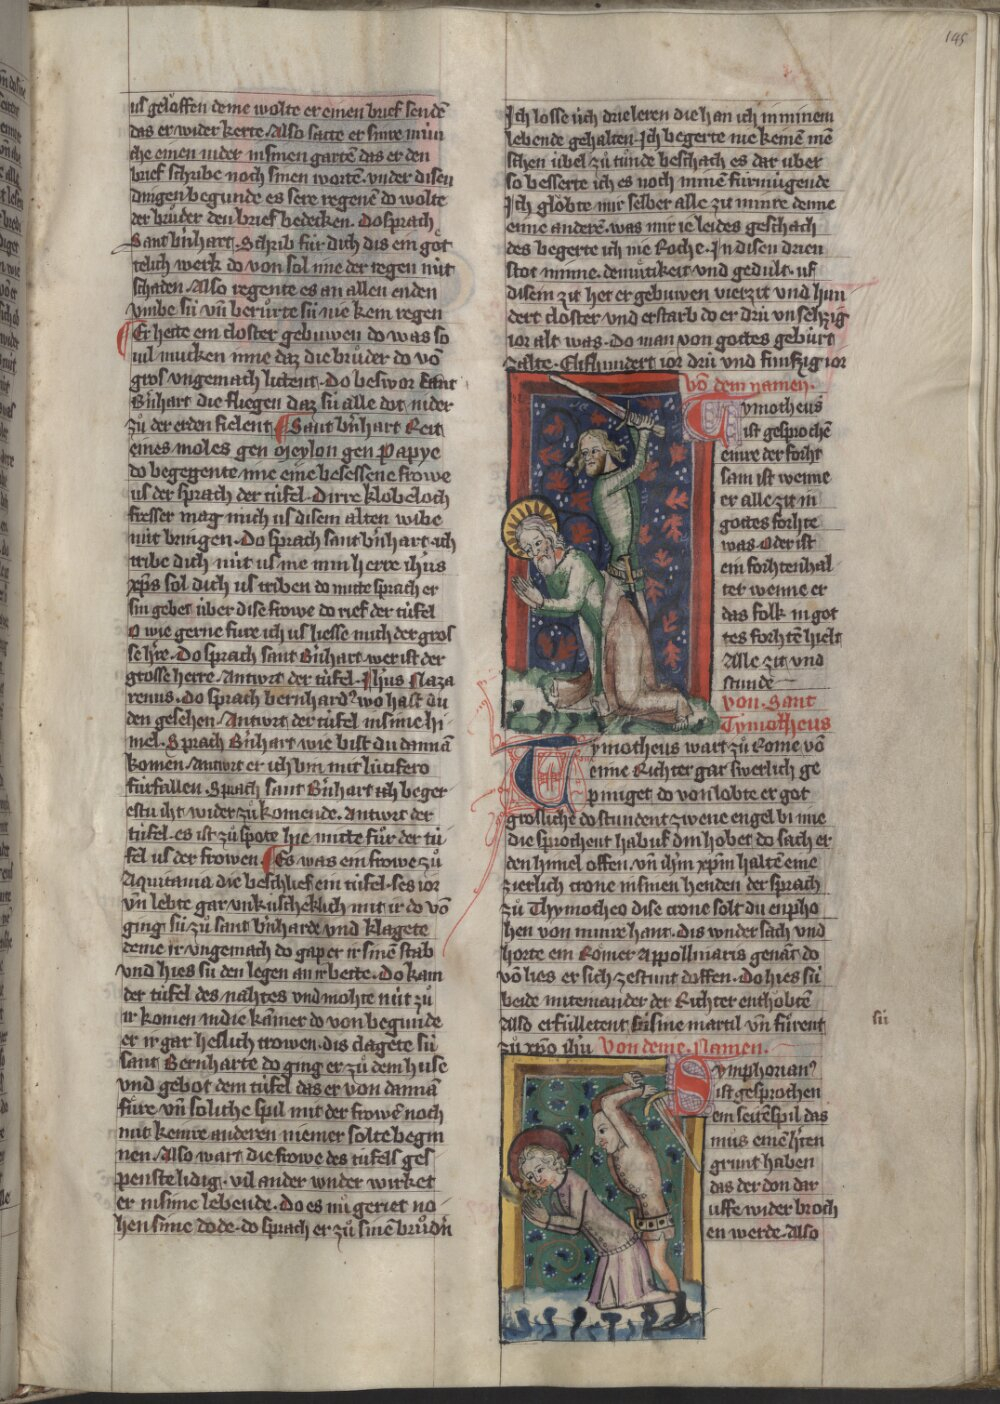 195
us geloͤffen deme wolte er einen brief sendē
das er wider kerte. Also satte er sinre mün
che einen nider in sinen gartē das er den
brief schribe noch sinen wortē. vnder disen
dingen begunde es sere regenē do wolte
der brůder den brief bedecken. Do sprach
Sant bñhart. Schrib für dich dis ein goͤt
telich werk do von sol me der regen nüt
schaden. Also regente es an allen enden
vmbe sü vñ berürte sü nie kem regen
Er hette ein closter gebuwen do was so
uil mucken inne daz die brůder do vō
gros vngemach littent. Do beswor Sant
Bñhart die fliegen daz sü alle dot nider
zů der erden fielent Sant bñhart Reit
eines moles gen Meylon gen Papye
do begegente ime eine besessene frowe
us der sprach der tüfel. Dirre klobeloch
fresser mag mich us disem alten wibe
nüt bringen. Do sprach sant bñhart. ich
tribe dich nüt us me min herre ih̄us
xp̄s sol dich us triben do mitte sprach er
sin gebet über dise frowe do rief der tüfel
O wie gerne fure ich us liesse mich der gros
se h̄re. Do sprach sant Bñhart wer ist der
grosse herre. Antwrt der tüfel. Ihus Naza
renus. do sprach bernhardꝰ wo hast du
den gesehen. Antwrt der tüfel in sime hi
mel. Sprach Bñhart wie bist du dannā
komen. Antwrt er ich bin mit lucifero
fürfallen. Sprach sant Bñhart ich beger
estu iht wider zů komende. Antwrt der
tüfel. es ist zů spote hie mitte für der tü
fel us der frowen Es was ein frowe zů
Aquitania die beschlief ein tüfel. ses ior
vñ lebte gar vnkuscheklich mit ir do vō
ging sü zů sant bñharde vnd klagete
deme ir vngemach do gap er ir sinē stab
vnd hies sü den legen an ir bette. Do kam
der tüfel des nahtes vnd mohte nüt zů
ir komen in die kāmer do von begunde
er ir gar heslich trowen. dis clagete sü
sant Bernharte do ging er zů dem huse
vnd gebot dem tüfel das er von dannā
füre vñ soliche spil mit der frowē noch
mit kemre anderen niemer solte begin
nen. Also wart die frowe des tüfels ges
penste lidig. vil ander wnder wirket
er in sime lebende. do es nů geriet no
hen sime dode. do sprach er zů sinē brůdn̄
Ich losse üch drie leren die han ich in minem
lebende gehalten. Ich begerte nie kemē mē
schen übel zů tůnde beschach es dar über
so besserte ich es noch minē fürmügende
Ich gloͤbte mir selber alle zit minre denne
eime anderē. was mir ie leides geschach
des begerte ich nie Roche. In disen drien
stot minne. demůtikeit vnd gedult. uf
disem zit het er gebuwen vierzit vnd hun
dert closter vnd erstarb do er drü vn sehzig
ior alt was. do man von gottes gebürt
zalte. Eilfhundert ior drü vnd fünfzig ior
võ dem namen.
Tymotheus
ist gesprochē
einre der forht
sam ist wenne
er alle zit in
gottes forhte
was. Oder ist
ein forhtenhal
ter wenne er
das folk in got
tes forhtē hielt
Alle zit vnd
stunde
von Sant
Tymotheus
Tymotheus wart zů Rome vō
eime Richter gar swerlich ge
piniget do von lobte er got
grosliche do stundent zwene engel bi ime
die sprochent hab uf din hobet do sach er
den himel offen. vñ ih̄m xp̄m haltē eine
zierlich crone in sinen henden der sprach
zů Thymotheo dise crone solt du enpho
hen von minre hant. dis wnder sach vnd
horte ein Roͤmer Appollinaris genāt do
vō hies er sich zestunt doͤffen. Do hies sü
beide miteinander der Richter enthoͤbtē
Also erfülletent sü sine martil vñ fůrent
sü
zů xp̄o ih̄u Von deme Namen.
Symphorianꝰ
ist gesprochen
ein seitēspil das
můs einē h̄ten
grunt haben
das der don dar
uffe wider broch
en werde. Also